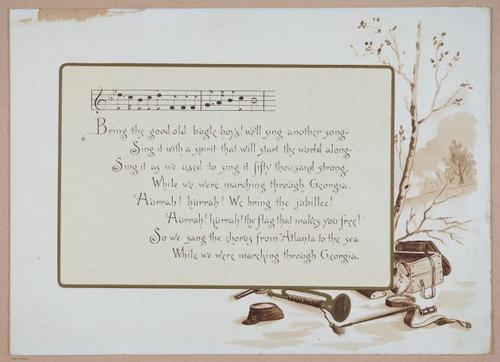 Bring the good old bugle boys! we'll sing another song-
Sing it with a spirit that will start the world along-
Sing it as we used to sing it fifty thousand strong,
While we were marching through Georgia.
"Hurrah! hurrah! We bring the jubilee!
"Hurrah! hurrah! the flag that makes you free!"
So we sang the chorus from Atlanta to the sea
While we were marching through Georgia.